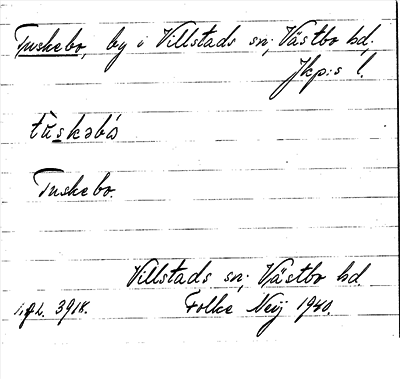 Tuskebo, by i Villstads sn; Västbo hd,
Jkp:s l.
tùskəbó
Tuskebo.
Villstads sn; Västbo hd.
3918. Folke Neij 1940.